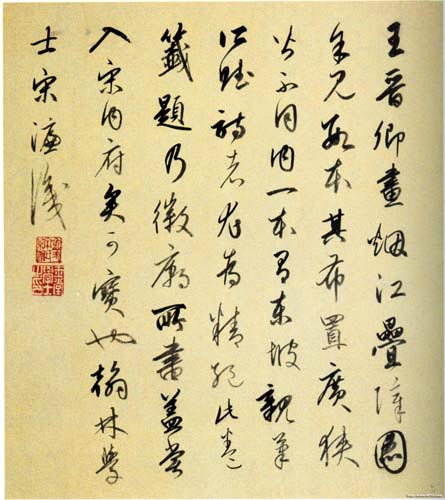 王晉卿畫烟江疊障圖
余見數本其布置廣狹
皆不同內一本有東坡親筆
所賦詩者尤為精絕此卷
籤題乃徽廟所書蓋嘗
入宋內府矣可寶也翰林學
士宋濂識